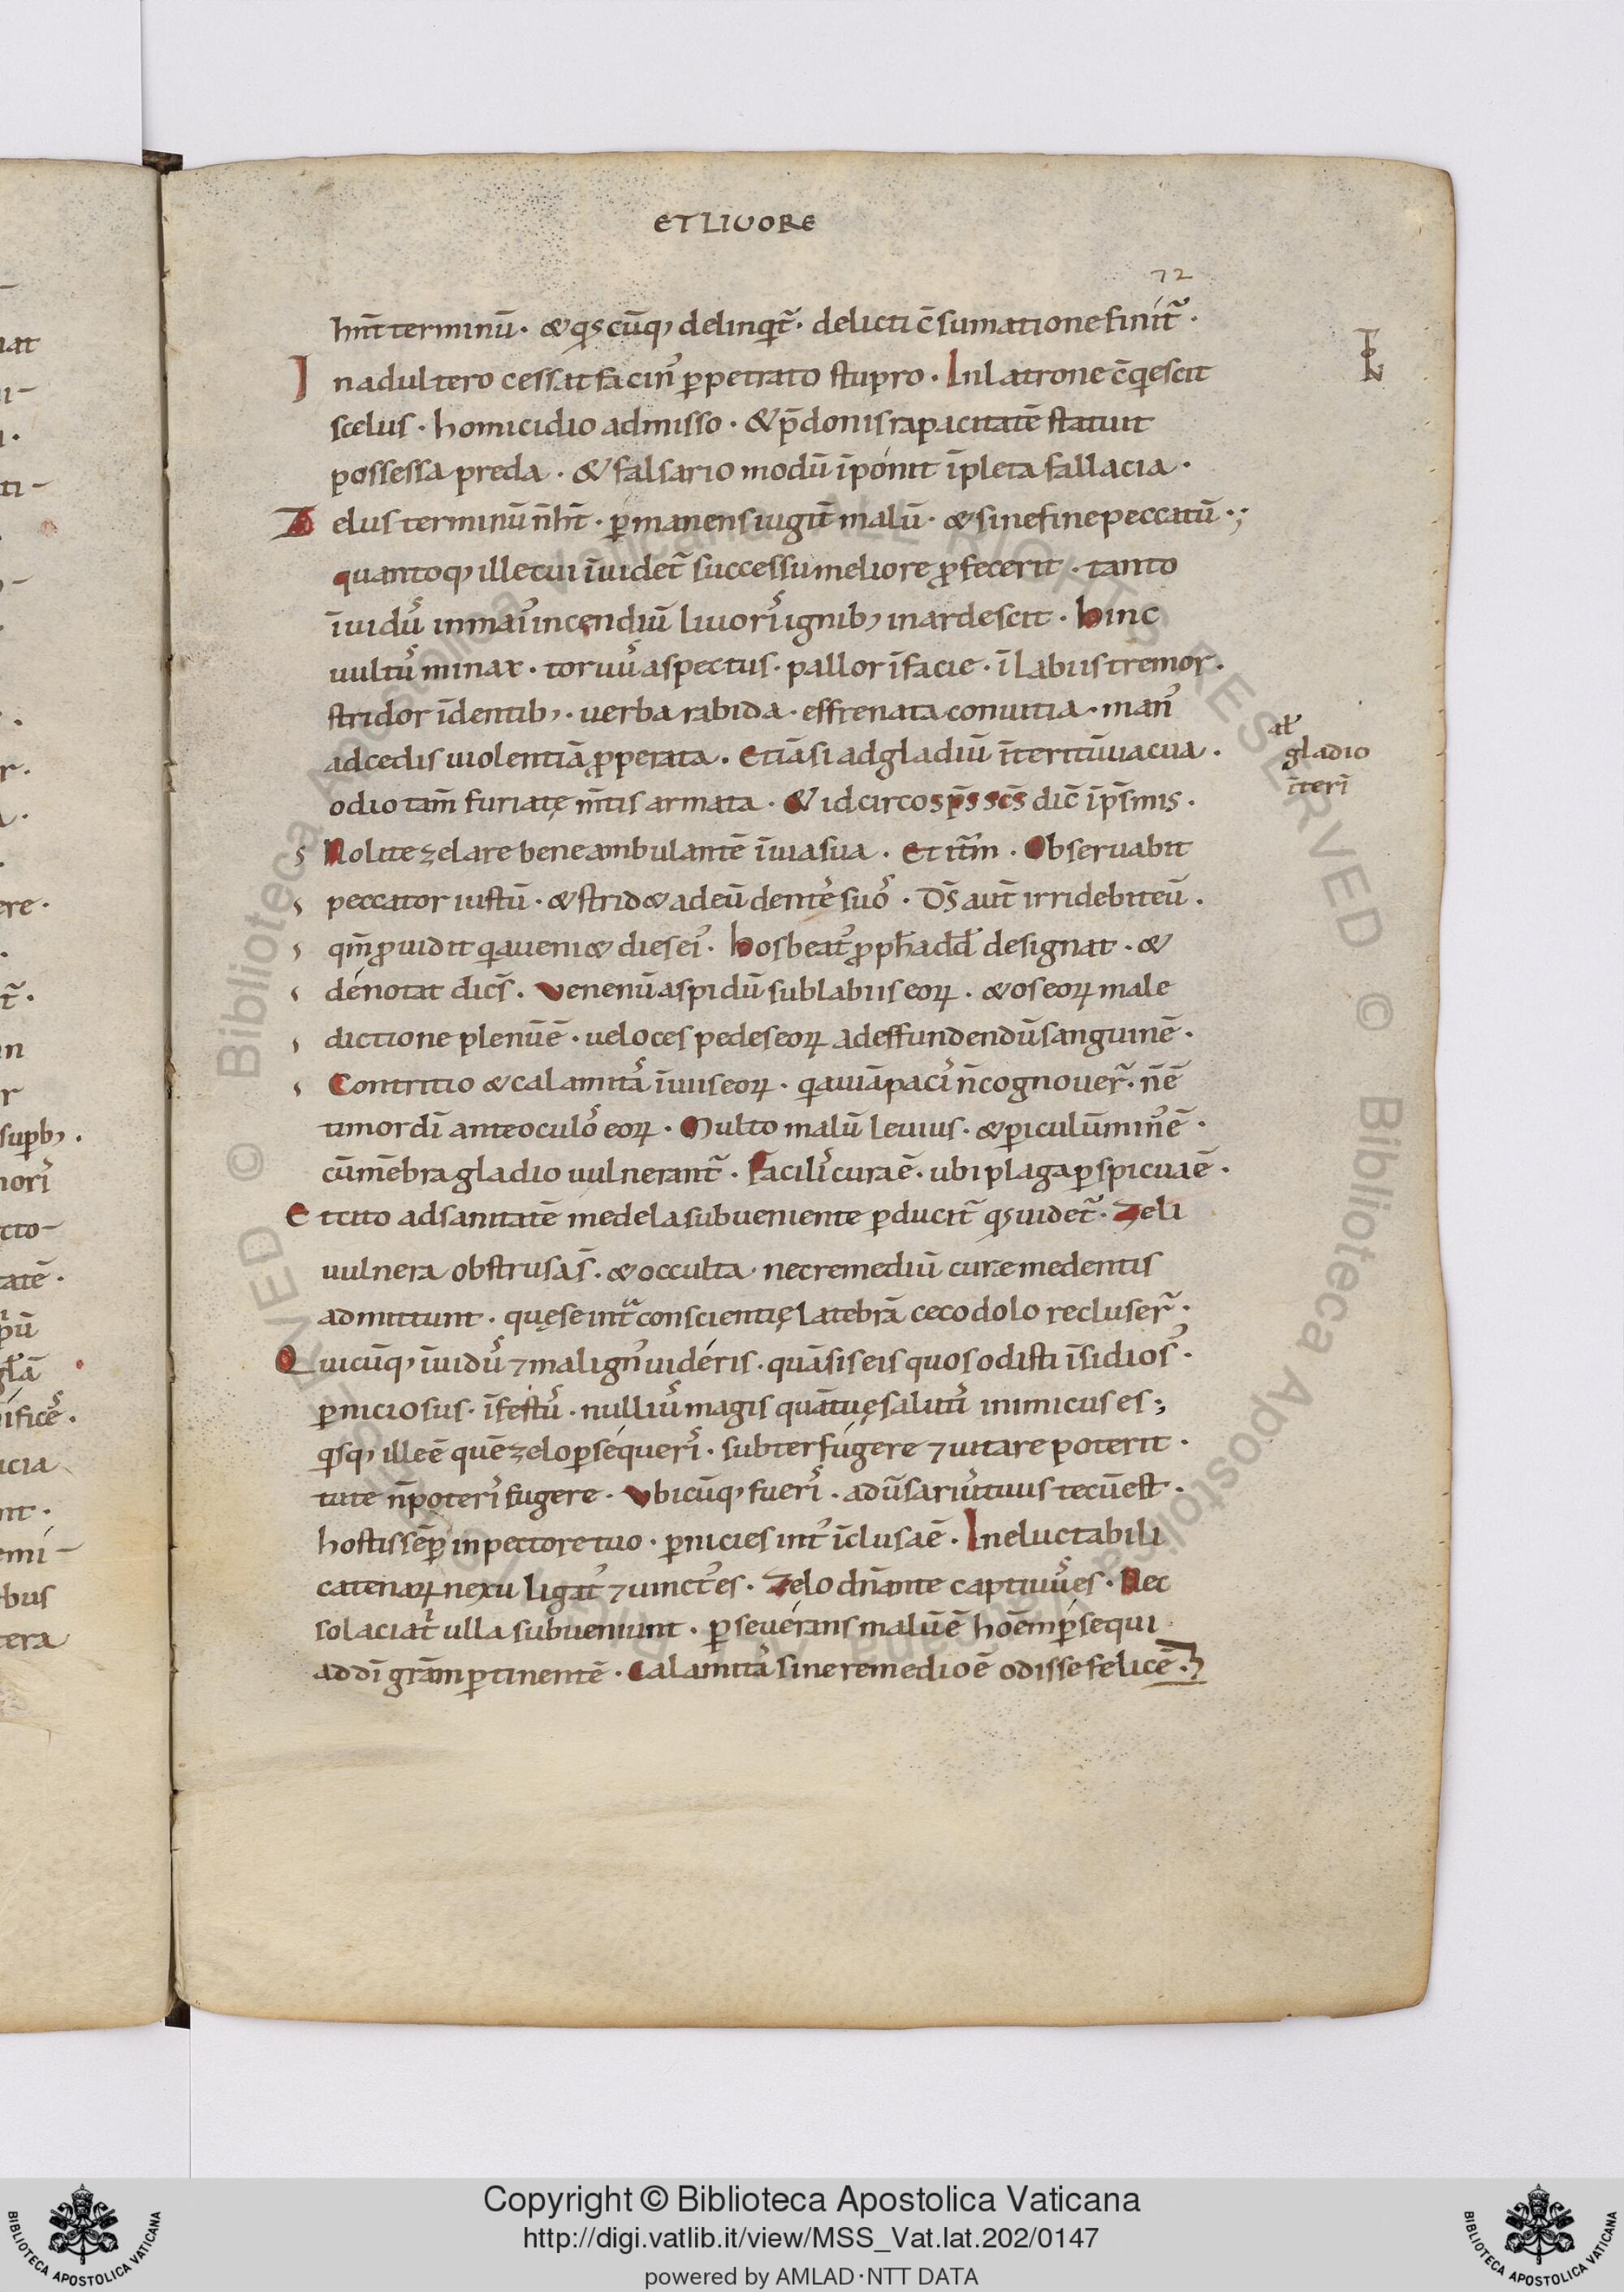 ET LIUORE
72
hn̄t terminū. & qͥscūq; delinq̇t᷑. delicti c̄sumatione finit᷑.
In adultero cessat facin᷒ ꝑpetrato stupro. In latrone c̄q̇escit
scelus. homicidio admisso. & p̄donis rapacitatē statuit
possessa preda. & falsario modū īponit īpleta fallacia.
Zelus terminū n̄ ht̄. ꝑmanens iugit̄ malū. & sine fine peccatū.;
quantoq; ille cui īuidet᷑ successu meliore ꝓfecerit. tanto
īuidu᷒ in mai᷒ incendiū liuori᷒ ignib; inardescit. Hinc
uultu᷒ minax. toruu᷒ aspectus. pallor ī facie. ī labiis tremor.
stridor ī dentib;. uerba rabida. effrenata conuitia. man᷒
ad cedis uiolentiā ꝓperata. Etiā si ad gladiū īteritū uacua.
odio tam̄ furiatę m̄tis armata. & idcirco sp̄s sc̄s dic̄ ī ps̄mis.
Nolite zelare bene ambulantē ī uia sua. Et itm̄. Obseruabit
peccator iustū. & strid& ad eū dente᷒ suo᷒. Ds̄ aut̄ irridebit eū.
qm̄ ꝓuidit qͥa ueni& dies ei᷒. Hos beat᷒ ꝓph̄a dd̄ designat. &
denotat dic̄s. Venenū aspidū sub labiis eoꝝ. & os eoꝝ male
dictione plenū ē. ueloces pedes eoꝝ ad effundendū sanguinē.
Contritio & calamita᷒ ī uiis eoꝝ. qͥa uiā paci᷒ n̄ cognouer᷑. n̄ ē
timor dī ante oculo᷒ eoꝝ. Multo malū leuius. & ꝑiculū min᷒ ē.
cū mēbra gladio uulnerant᷑. Facili᷒ cura ē. ubi plaga ꝑspicua ē.
Et cito ad sanitatē medela subueniente ꝑducit᷑ qͥs uidet᷑. Zeli
uulnera obstrusa s̄. & occulta. nec remediū curæ medentis
admittunt. quę se int᷑ conscientię latebra᷒ ceco dolo recluser᷑.
Quicūq; īuidu᷒ ⁊ malign᷒ uideris. quā sis eis quos odisti īsidios᷒.
ꝑniciosus. īfestu᷒. nulliu᷒ magis quā tuę saluti᷒ inimicus es;
qͥsqͥ; ille ē quē zelo ꝑsequeri᷒. subterfugere ⁊ uitare poterit.
tu te n̄ poteri᷒ fugere. Vbicūq; fueri᷒. adūsari᷒ tuus tecū est.
hostis sēꝑ in pectore tuo. ꝑnicies int᷒ īclusa ē. Ineluctabili
catenaꝝ nexu ligat᷒ ⁊ uinct᷒ es. Zelo dn̄ante captiuu᷒ es. Nec
solacia t̄ ulla subueniunt. ꝑseuerans malū ē hoēm ꝑsequi
ad dī grām ꝑtinentē. Calamita᷒ sine remedio ē odisse felicē.
at̄
gladio
īteri᷒